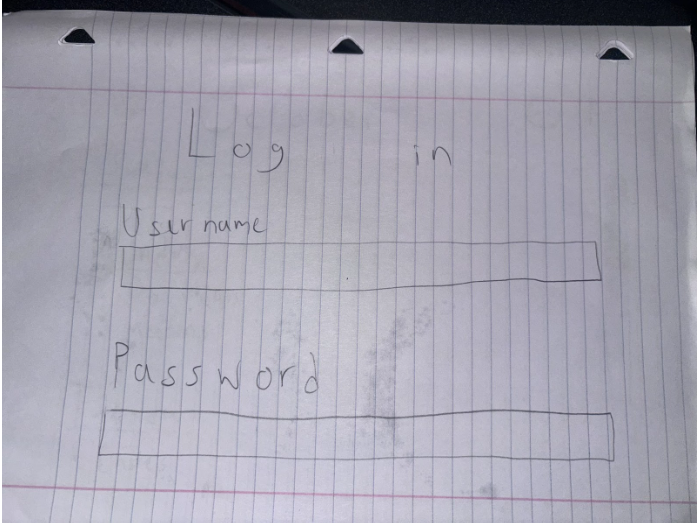 Log in
Username
Password